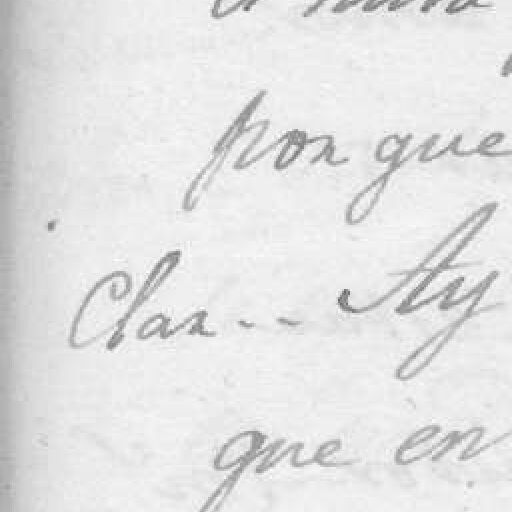 por que
Clar.-- Ay
que en